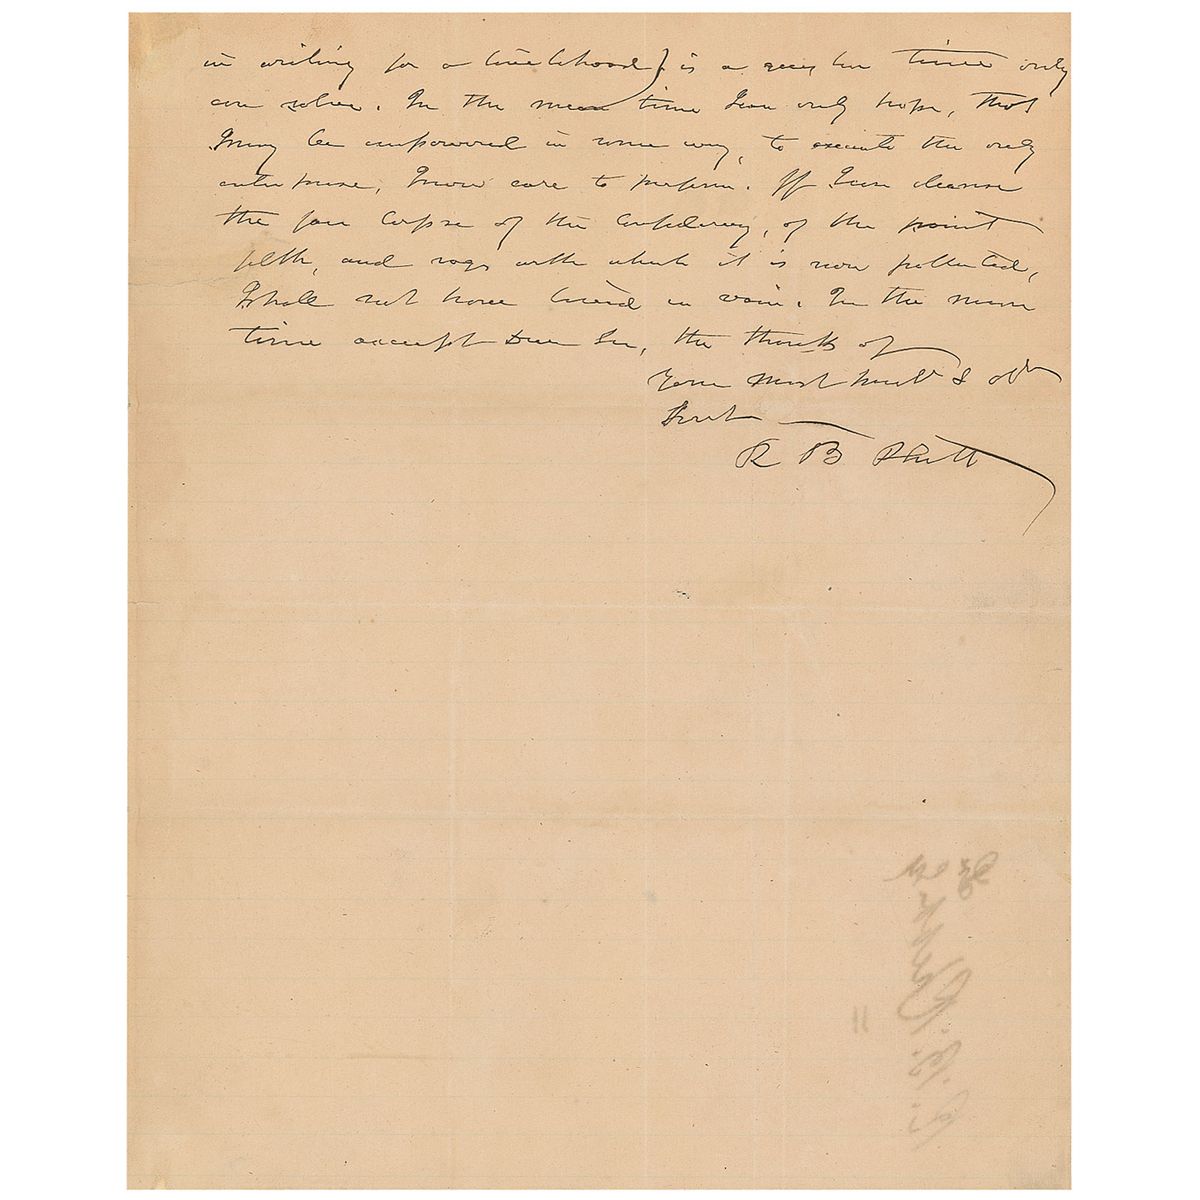 in writing for a livelihood) is a question time only
can solve. In the mean time I can only hope, that
I may be empowered in some way, to execute the only
enterprise, I now care to perform. If I can cleanse
the fair corpse of the Confederacy, of the paint
filth, and rags with which it is now polluted,
I shall not have lived in vain. In the mean
time accept Dear Sir, the thanks of
Your most humb & obt
Servt
R B Rhett
R. B. Rhett